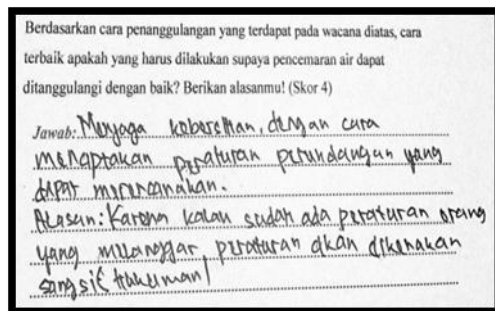 Berdasarkan cara penanggulangan yang terdapat pada wacana diatas, cara
terbaik apakah yang harus dilakukan supaya pencemaran air dapat
ditanggulangi dengan baik? Berikan alasanmu! (Skor 4)
Jawab: Menjaga kebersihan, dengan cara
menciptakan peraturan perundangan yang
dapat merencanakan.
Alasan: Karena kalau sudah ada peraturan orang
yang melanggar peraturan akan dikenakan
sangsi (hukuman)